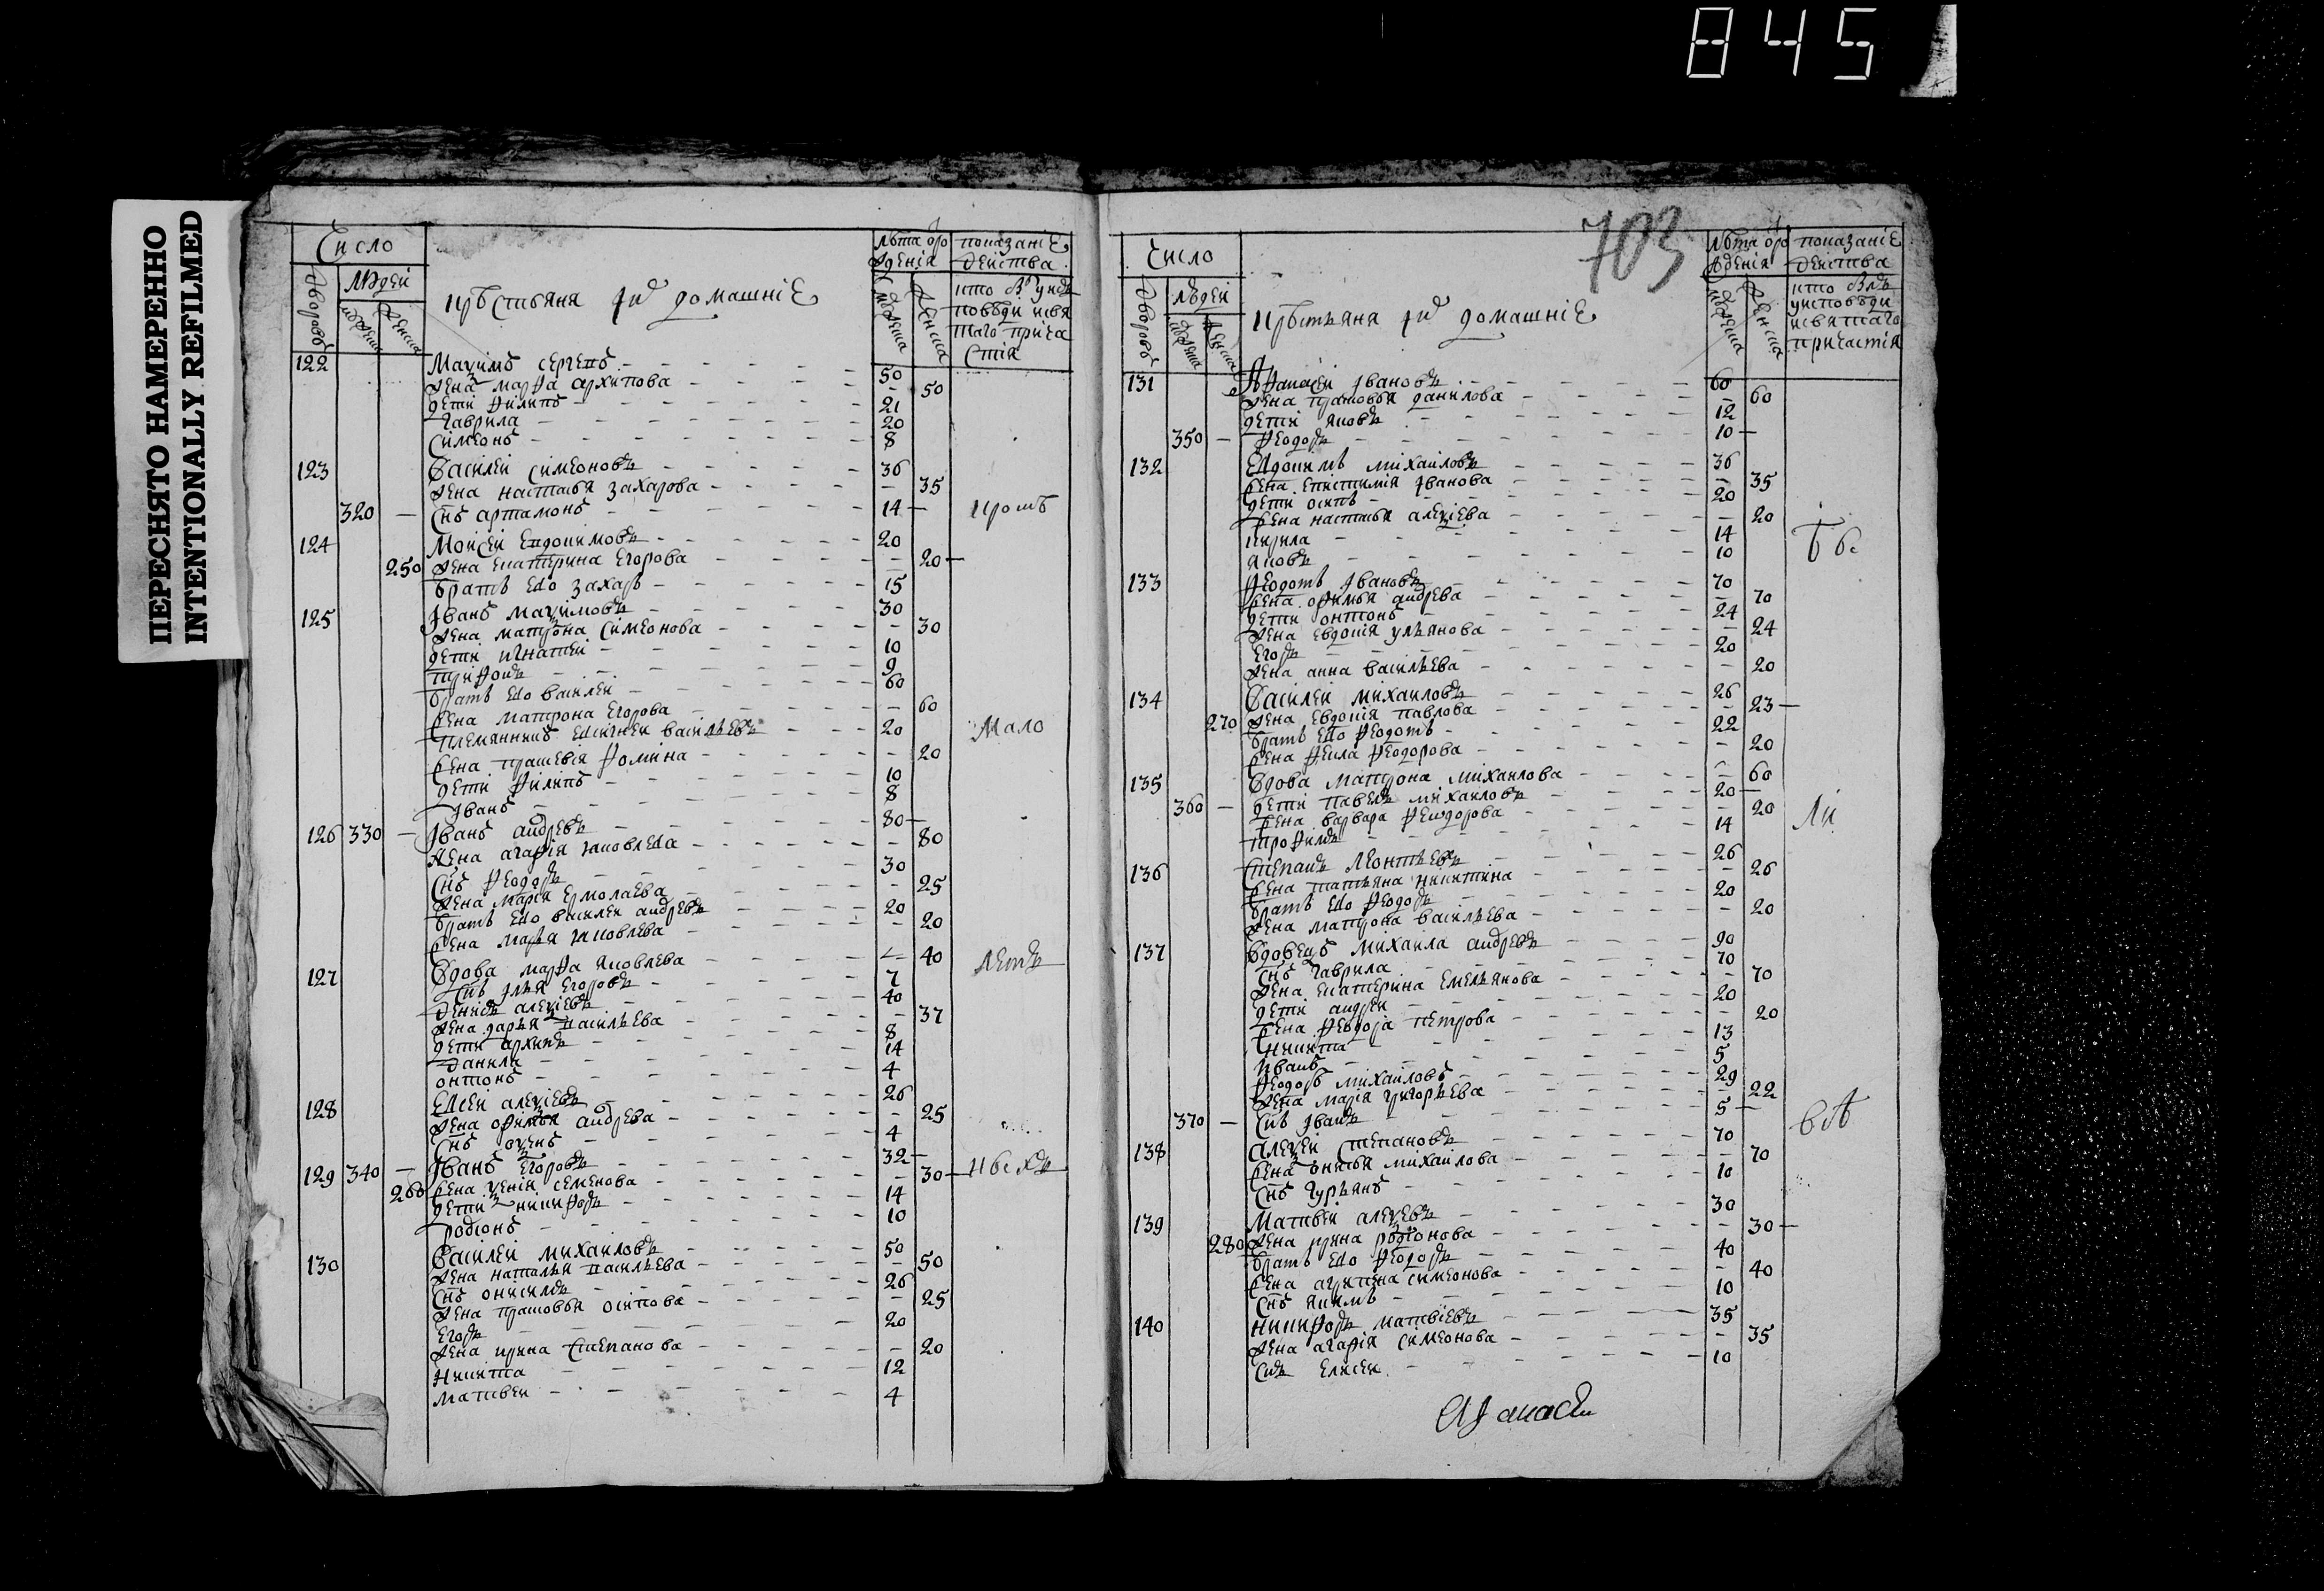 845
ПЕРЕСНЯТО НАМЕРЕННО
INTENTIONALLY REFILMED
Число
людей
дворовъ
крѣстьяня ихъ домашніе
лѣта отро
жденія
показаніе
действа
кто былъ у испо
повѣди исвя
таго прича
стія
122 Мазимъ сергеевъ 50
жена марфа архипова 50
дети филипъ 21
гаврила 20
симеонъ 8
123 василей симеоновъ 36
жена настасья захарова 35
320 — снъ артамонъ 14 — кромъ
124 Моисей евдокимовъ 20
250 жена екатерина егорова 20 —
братъ его захаръ 15
125 Іванъ мазимовъ 30
жена матрона симеонова 30
дети игнатей 10
трифонъ 9
братъ его василей 60
жена матрона егорова 60
племянникъ евсигней васильевъ 20 мало
жена прасковія фомина 20
дети филипъ 10
Іванъ 8
126 330 — Іванъ андреевъ 80 —
жена агафія яковлева 80
снъ феодоръ 30
жена марія ермолаева 25
братъ его василей андреевъ 20
жена марья яковлева 20
127 вдова марфа яковлева 40 летъ
снъ илья егоровъ 7
денисъ алексіевъ 40
жена дарья васильева 37
дети архипъ 8
данила 14
онтонъ 4
128 евсей алексіевъ 26
жена офимья андрева 25
снъ 4
129 340 — Іванъ егоровъ 32 —
260 жена ксенія семенова 30 — ивсехъ
дети никифоръ 14
родіонъ 10
130 василей михаиловъ 50
жена наталья васильева 50
снъ онисимъ 26
жена прасковья осипова 25
егоръ 20
жена ирина степанова 20
никита 12
матвей 4
703
Число
людей
дворовъ
крѣстьяня ихъ домашніе
лѣта отро
жденія
показаніе
действа
кто былъ
уисповѣди
исвятаго
причастія
131 Афанасей Івановъ 60
жена прасковья данилова 60
дети яковъ 12
350 — феодоръ 10 —
132 евдокимъ михаиловъ 36
жена епистимія Іванова 35
дети осипъ 20
жена настасья алексіева 20
кирила 14
яковъ 10
133 феодотъ Івановъ 70
жена офимья андрева 70
дети онтонъ 24
жена евдокія ульянова 24
егоръ 20
жена анна васильева 20
134 василей михаиловъ 26
270 жена евдокія павлова 23 —
братъ его феодотъ 22
жена фекла феодорова 20
135 вдова матрона михаилова 60
360 — дети павелъ михаиловъ 20 —
жена варвара феодорова 20 ли
трофимъ 14
136 степанъ леонтьевъ 26
жена татьяна никитина 26
братъ его феодоръ 20
жена матрона васильева 20
137 вдовецъ михаила андреевъ 90
снъ гаврила 70
жена екатерина емельянова 70
дети андрей 20
жена феодосія петрова 20
никита 13
иванъ 5
феодоръ михаиловъ 29
жена марія григорьева 22
370 — снъ Іванъ 5 —
138 алексей степановъ 70
жена михаилова 70
снъ гурьянъ 10
139 Матвей алексеевъ 30
280 жена ирина родіонова 30 —
братъ его феодоръ 40
жена агрипена симеонова 40
снъ якимъ 10
140 никифоръ матвіевъ 35
жена агафія симеонова 35
снъ елисей 10
Афанасей